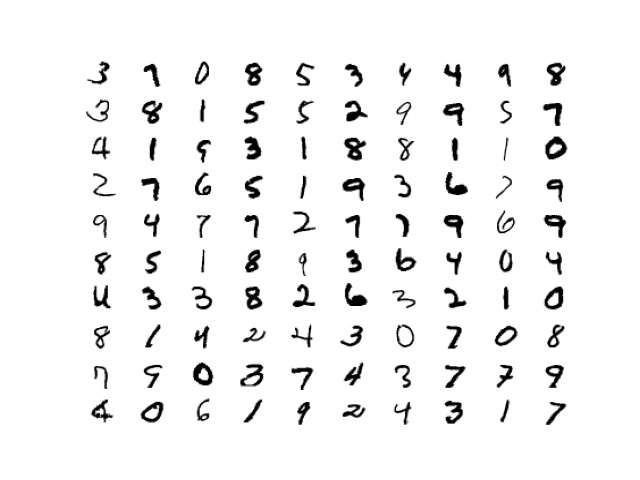 3 7 0 8 5 3 4 4 9 8
3 8 1 5 5 2 9 9 5 7
4 1 9 3 1 8 8 1 1 0
2 7 6 5 1 9 3 6 7 9
9 4 7 7 2 7 7 9 6 9
8 5 1 8 9 3 6 4 0 4
4 3 3 8 2 6 3 2 1 0
8 1 4 2 4 3 0 7 0 8
7 9 0 3 7 4 3 7 7 9
4 0 6 1 9 2 4 3 1 7